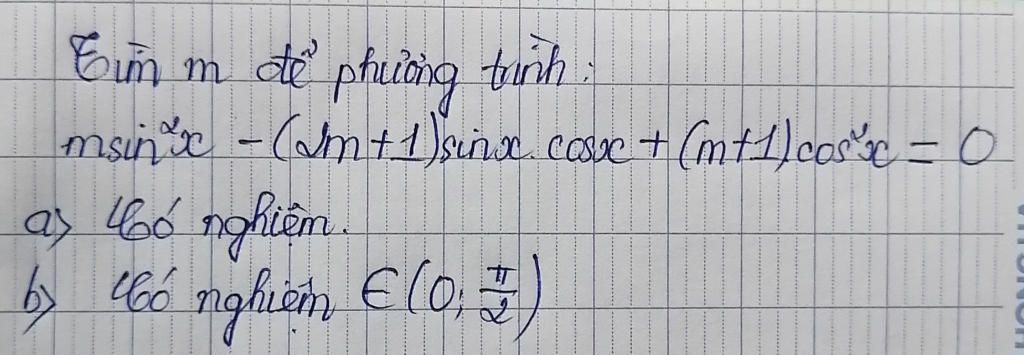 Tìm m để phương trình:
msin²x - (2m+1)sinx.cosx + (m+1)cos²x = 0
a) Có nghiệm.
b) Có nghiệm ∈ (0; π/2)